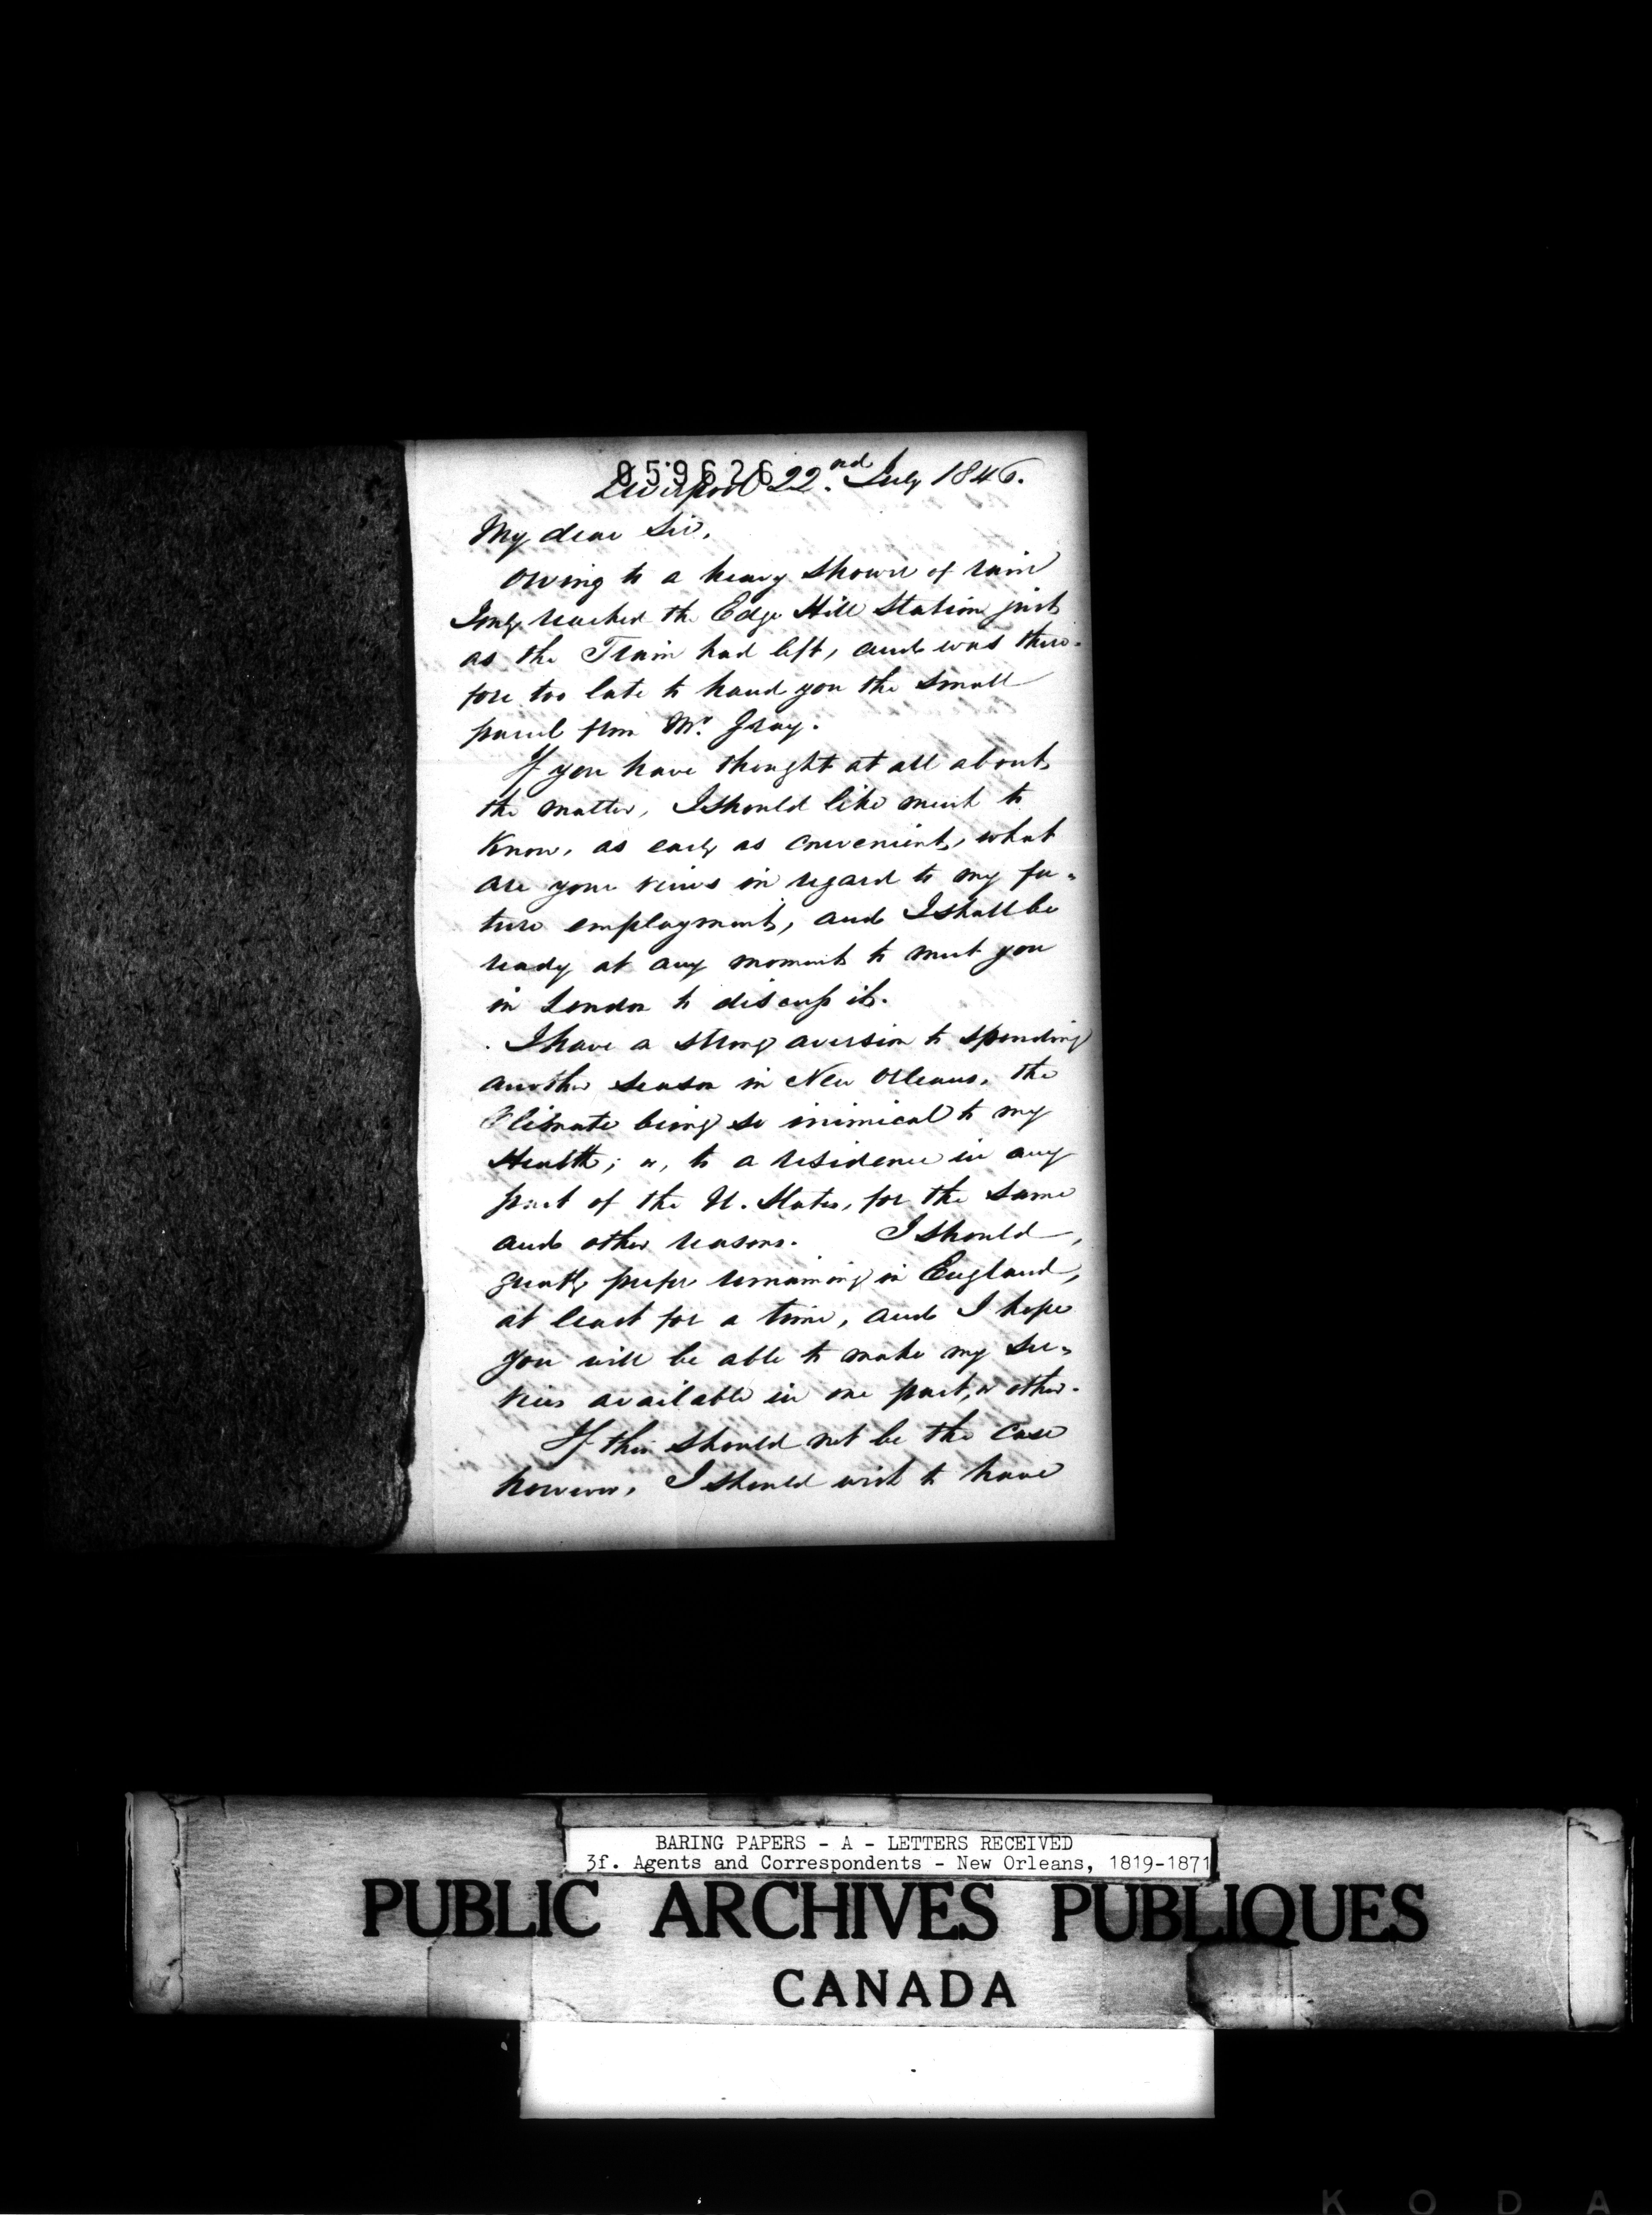 059626
Liverpool 22.nd July 1846.
My dear Sir,
Owing to a heavy shower of rain
I only reached the Edge Hill Station just
as the Train had left, and was there-
fore too late to hand you the small
parcel from Mr. Gray.
If you have thought at all about
the matter, I should like much to
know, as early as convenient, what
are your views in regard to my fu-
ture employment, and I shall be
ready at any moment to meet you
in London to discuss it.
I have a strong aversion to spending
another season in New Orleans, the
Climate being so inimical to my
Health; or, to a residence in any
part of the U. States, for the same
and other reasons. I should,
greatly prefer remaining in England,
at least for a time, and I hope
you will be able to make my ser-
vices available in one part, or other.
If this should not be the case
however, I should wish to have
BARING PAPERS - A - LETTERS RECEIVED
3f. Agents and Correspondents - New Orleans, 1819-1871
PUBLIC ARCHIVES PUBLIQUES
CANADA
K O D A